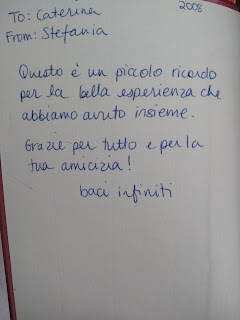 To: Caterina 2008
From: Stefania
Questo è un piccolo ricordo
per la bella esperienza che
abbiamo avuto insieme.
Grazie per tutto e per la
tua amicizia!
baci infiniti